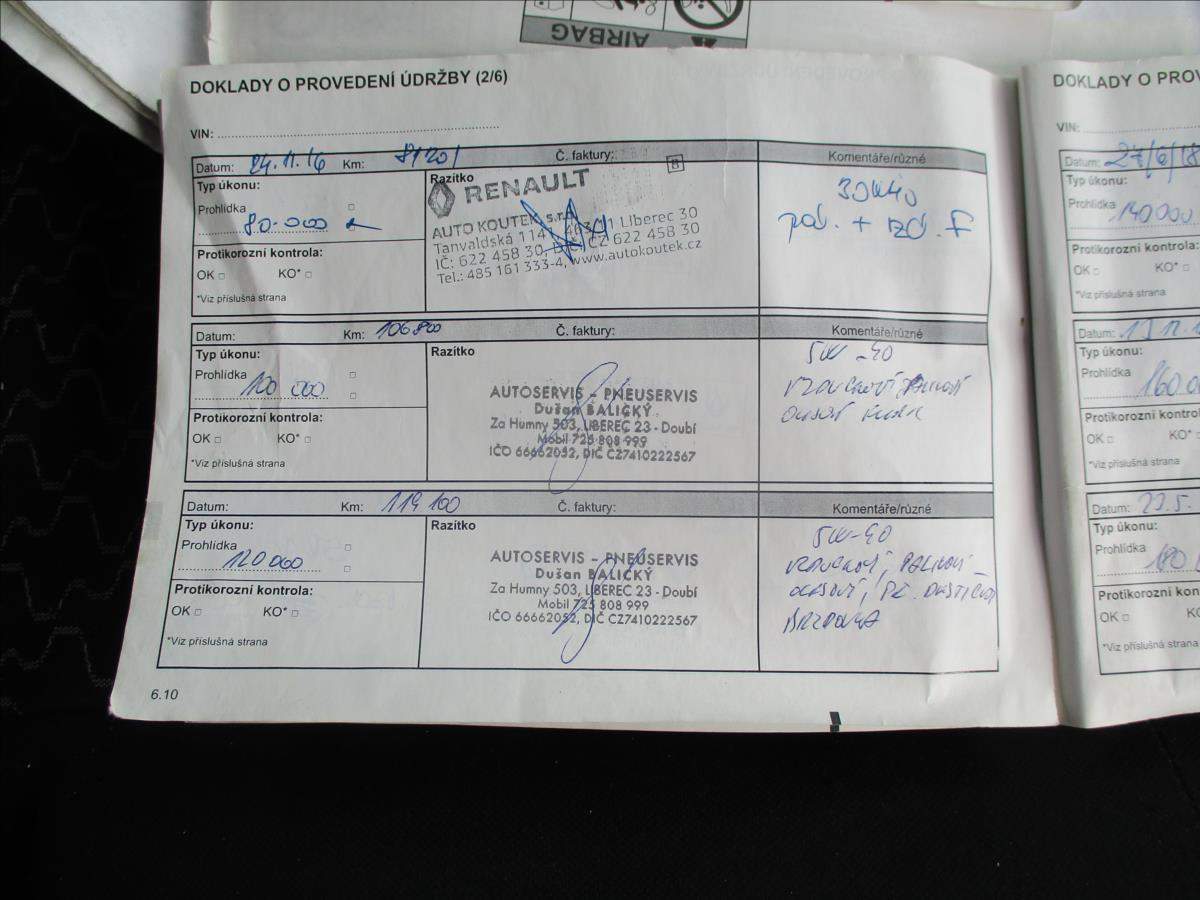 AIRBAG
DOKLADY O PROVEDENÍ ÚDRŽBY (2/6)
VIN:
Datum: 24.11.16 Km: 81201 Č. faktury: Komentáře/různé
Typ úkonu: Razítko B 30W40
Prohlídka RENAULT
80.000 AUTO KOUTEK, s.r.o. + F
Tanvaldská 114 463 11 Liberec 30
Protikorozní kontrola: IČ: 622 458 30, DIČ: CZ 622 458 30
OK KO* Tel.: 485 161 333-4, www.autokoutek.cz
*Viz příslušná strana
Datum: Km: 106 800 Č. faktury: Komentáře/různé
Typ úkonu: Razítko 5W-40
Prohlídka
100 000 AUTOSERVIS – PNEUSERVIS
Dušan BALICKÝ
Protikorozní kontrola: Za Humny 503, LIBEREC 23 - Doubí
OK KO* Mobil 725 808 999
*Viz příslušná strana IČO 66662052, DIČ CZ7410222567
Datum: Km: 119 100 Č. faktury: Komentáře/různé
Typ úkonu: Razítko 5W-40
Prohlídka
120 000 AUTOSERVIS – PNEUSERVIS
Dušan BALICKÝ
Protikorozní kontrola: Za Humny 503, LIBEREC 23 - Doubí
OK KO* Mobil 725 808 999
*Viz příslušná strana IČO 66662052, DIČ CZ7410222567
6.10
DOKLADY O PROV
VIN:
Datum: 27/6/18
Typ úkonu:
Prohlídka
140000
Protikorozní kontrol
OK KO*
*Viz příslušná strana
Datum:
Typ úkonu:
Prohlídka
160 0
Protikorozní kontro
OK KO*
*Viz příslušná strana
Datum: 23.5.
Typ úkonu:
Prohlídka
180
Protikorozní kontro
OK KO
*Viz příslušná strana